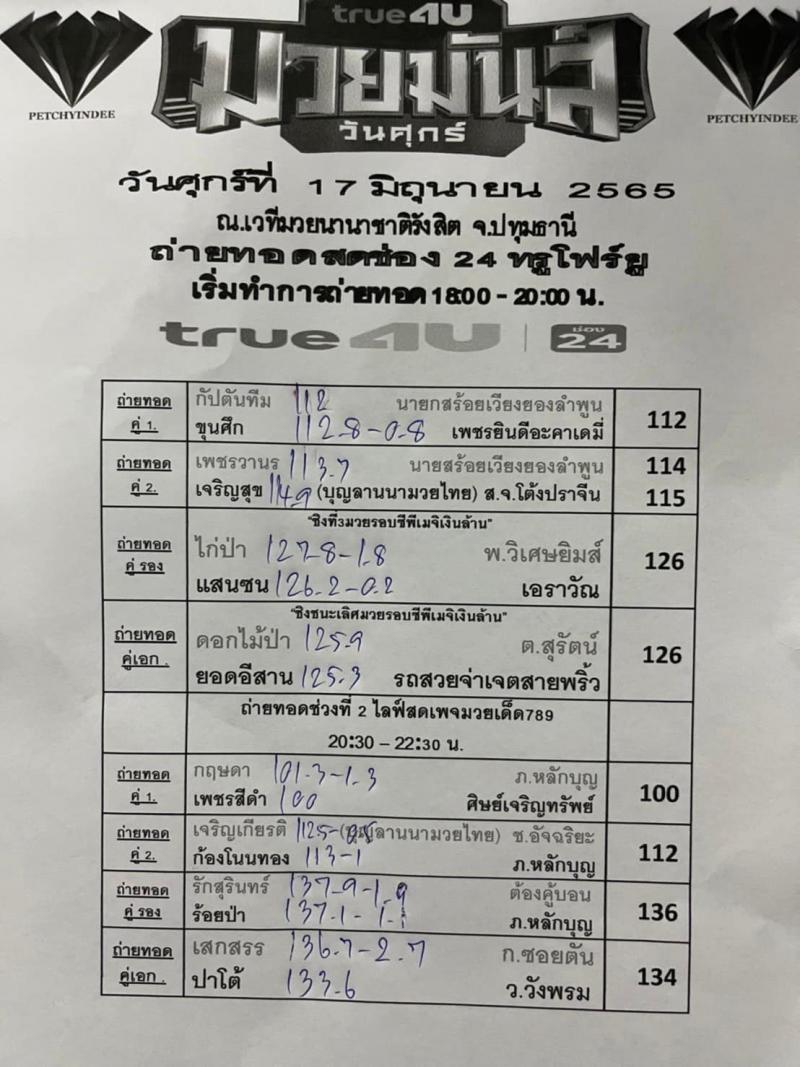 true4U
มวยมันส์
วันศุกร์
PETCHYINDEE
PETCHYINDEE
วันศุกร์ที่ 17 มิถุนายน 2565
ณ.เวทีมวยนานาชาติรังสิต จ.ปทุมธานี
ถ่ายทอดสดช่อง 24 ทรูโฟร์ยู
เริ่มทำการถ่ายทอด 18:00 - 20:00 น.
true4U ช่อง 24
ถ่ายทอด คู่ 1.
กัปตันทีม 112 นายกสร้อยเวียงยองลำพูน
ขุนศึก 112.8-0.8 เพชรยินดีอะคาเดมี่
112
ถ่ายทอด คู่ 2.
เพชรวานร 113.7 นายสร้อยเวียงยองลำพูน 114
เจริญสุข 114.9 (บุญลานนามวยไทย) ส.จ.โต้งปราจีน 115
"ชิงที่3มวยรอบซีพีเมจิเงินล้าน"
ถ่ายทอด คู่ รอง
ไก่ป่า 127.8-1.8 พ.วิเศษยิมส์
แสนซน 126.2-0.2 เอราวัณ
126
"ชิงชนะเลิศมวยรอบซีพีเมจิเงินล้าน"
ถ่ายทอด คู่เอก .
ดอกไม้ป่า 125.9 ต.สุรัตน์
ยอดอีสาน 125.3 รถสวยจ่าเจตสายพริ้ว
126
ถ่ายทอดช่วงที่ 2 ไลฟ์สดเพจมวยเด็ด789
20:30 – 22:30 น.
ถ่ายทอด คู่ 1.
กฤษดา 101.3-1.3 ภ.หลักบุญ
เพชรสีดำ 100 ศิษย์เจริญทรัพย์
100
ถ่ายทอด คู่ 2.
เจริญเกียรติ 112.5- (บุญลานนามวยไทย) ช.อัจฉริยะ
ก้องโนนทอง 113-1 ภ.หลักบุญ
112
ถ่ายทอด คู่ รอง
รักสุรินทร์ 137.9-1.9 ต้องคู้บอน
ร้อยป่า 137.1-1.1 ภ.หลักบุญ
136
ถ่ายทอด คู่เอก .
เสกสรร 136.7-2.7 ก.ซอยตัน
ปาโต้ 133.6 ว.วังพรม
134